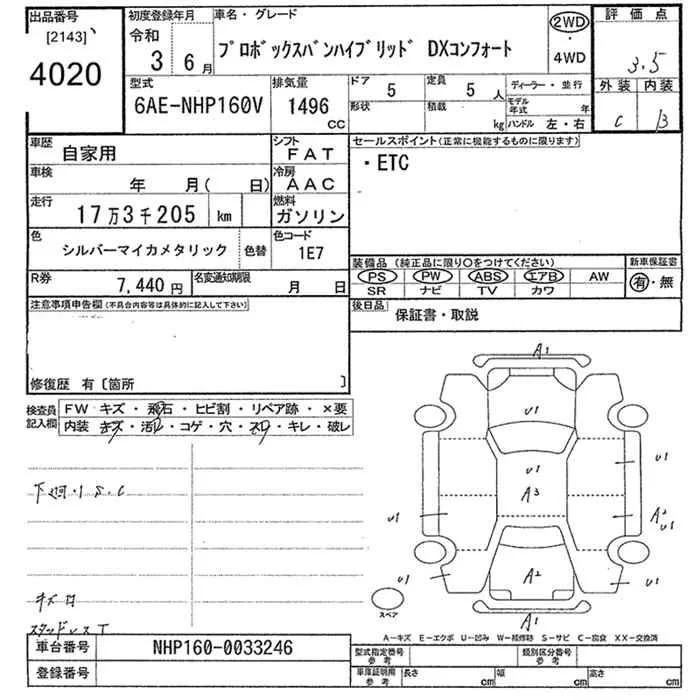 出品番号 初度登録年月 車名・グレード 2WD 評価点
[2143] 令和
4020 3 6月 プロボックスバンハイブリッド DXコンフォート ・ 3.5
4WD
型式 排気量 ドア 5 定員 5人 ディーラー・並行 外装 内装
6AE-NHP160V 1496 CC 形状 積載 kg モデル年式 年 C B
ハンドル 左・右
車歴 自家用 シフト FAT セールスポイント(正常に機能するものに限ります)
車検 年 月( 日) 冷房 AAC ・ETC
走行 17万3千205 km 燃料 ガソリン
色 シルバーマイカメタリック 色替 色コード 1E7
装備品(純正品に限り○をつけてください) 新車保証書
R券 7,440円 名変通知期限 月 日 PS PW ABS エアB AW 有・無
SR ナビ TV カワ
注意事項申告欄(不具合内容等は具体的に記入して下さい) 後日品 保証書・取説
修復歴 有〔箇所 〕
検査員記入欄 FW キズ・飛石・ヒビ割・リペア跡・×要
内装 キズ・汚れ・コゲ・穴・スレ・キレ・破レ
A1
U1
U1
U1
A3
U1
A2
U1
U1
A2
U1
A1
下廻り S.C
キズ
スタッドレス
スペア
A-キズ E-エクボ U-凹み W-補修跡 S-サビ C-腐食 XX-交換済
車台番号 NHP160-0033246 型式指定番号 参考 類別区分番号 参考
登録番号 車庫証明用 参考 長さ cm 幅 cm 高さ cm